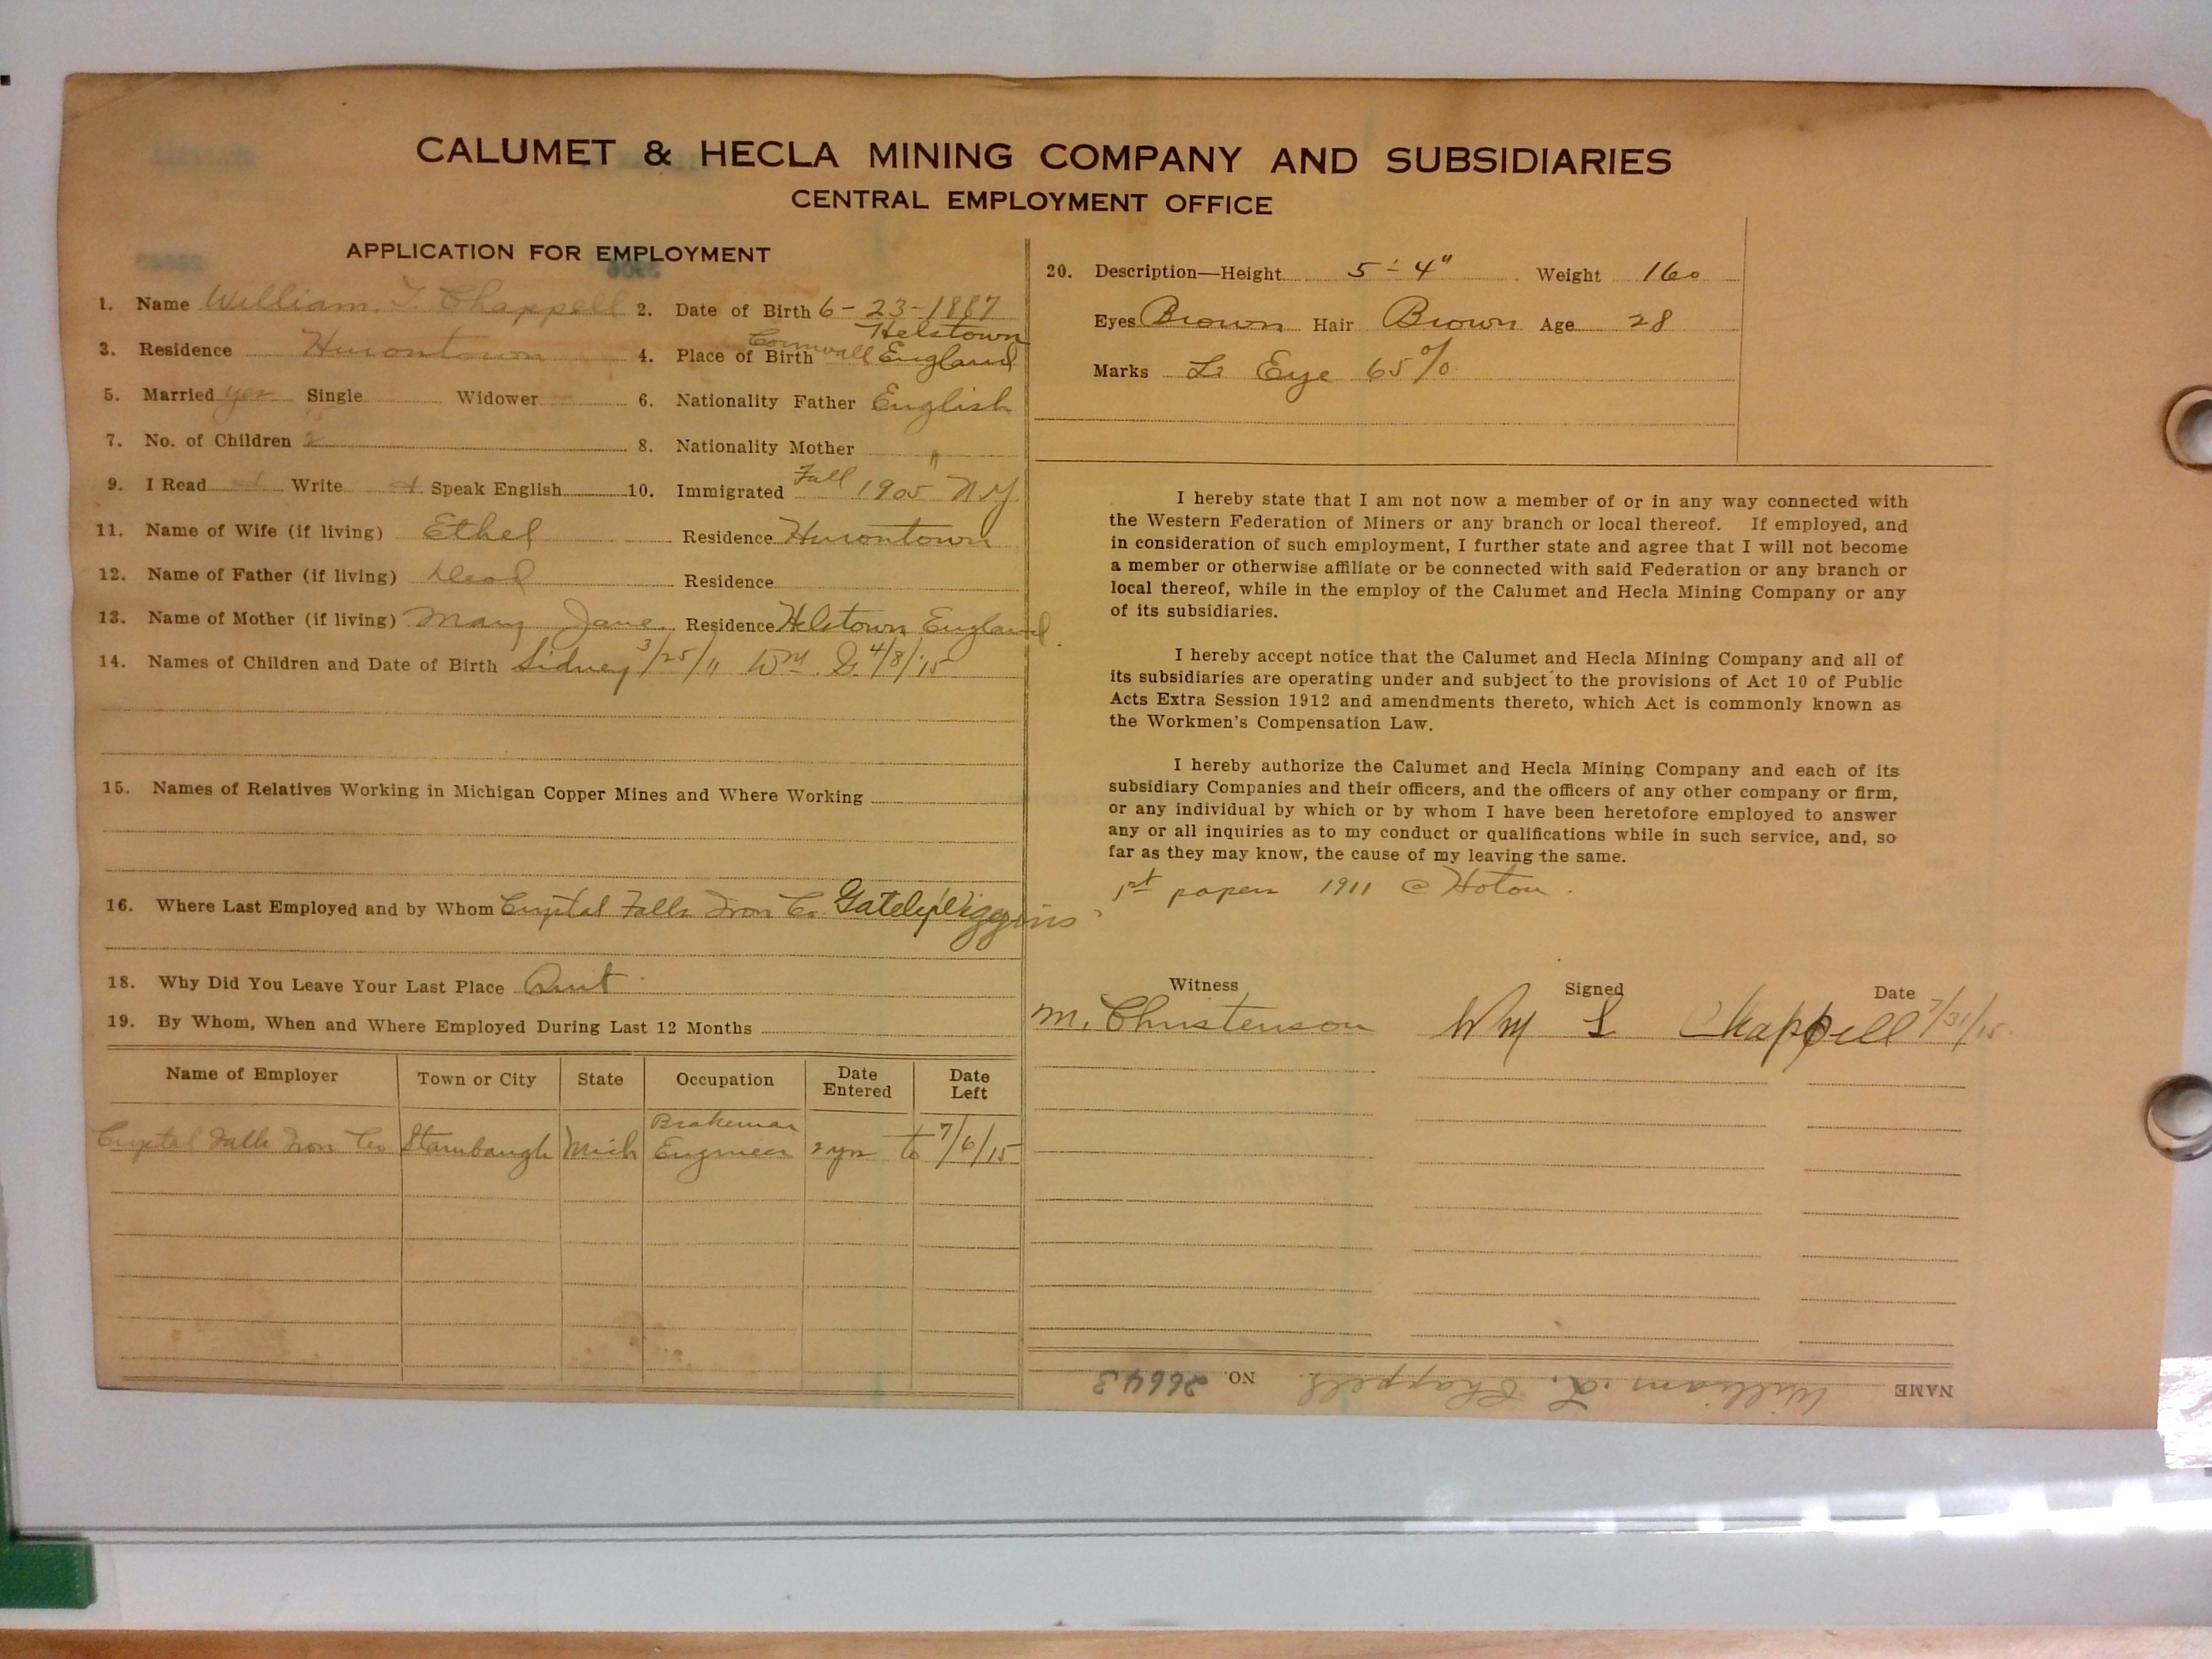 CALUMET & HECLA MINING COMPANY AND SUBSIDIARIES
CENTRAL EMPLOYMENT OFFICE
APPLICATION FOR EMPLOYMENT
1. Name William. Chappell 2. Date of Birth 6-23-1887
Helstown
3. Residence Hurontown 4. Place of Birth Cornwall England
5. Married yes Single Widower 6. Nationality Father English
7. No. of Children 2 8. Nationality Mother "
9. I Read Write Speak English 10. Immigrated Fall 1905 N.Y.
11. Name of Wife (if living) Ethel Residence Hurontown
12. Name of Father (if living) Dead Residence
13. Name of Mother (if living) Mary Jane Residence Helstown England
14. Names of Children and Date of Birth Sidney 3/25/11 Wm. 4/8/15
15. Names of Relatives Working in Michigan Copper Mines and Where Working
16. Where Last Employed and by Whom Crystal Falls Iron Co. Gately Wiggins
18. Why Did You Leave Your Last Place Quit
19. By Whom, When and Where Employed During Last 12 Months
Name of Employer Town or City State Occupation Date Entered Date Left
Brakeman
Crystal Falls Iron Co Stambaugh Mich Engineer 2 yrs to 7/6/15
20. Description—Height 5-4" Weight 160
Eyes Brown Hair Brown Age 28
Marks Eye 65%
I hereby state that I am not now a member of or in any way connected with
the Western Federation of Miners or any branch or local thereof. If employed, and
in consideration of such employment, I further state and agree that I will not become
a member or otherwise affiliate or be connected with said Federation or any branch or
local thereof, while in the employ of the Calumet and Hecla Mining Company or any
of its subsidiaries.
I hereby accept notice that the Calumet and Hecla Mining Company and all of
its subsidiaries are operating under and subject to the provisions of Act 10 of Public
Acts Extra Session 1912 and amendments thereto, which Act is commonly known as
the Workmen's Compensation Law.
I hereby authorize the Calumet and Hecla Mining Company and each of its
subsidiary Companies and their officers, and the officers of any other company or firm,
or any individual by which or by whom I have been heretofore employed to answer
any or all inquiries as to my conduct or qualifications while in such service, and, so
far as they may know, the cause of my leaving the same.
1st papers 1911 @ Hoton.
Witness Signed Date
M. Christenson Wm S Chappell 7/31/15
NAME William. Chappell. NO. 26643